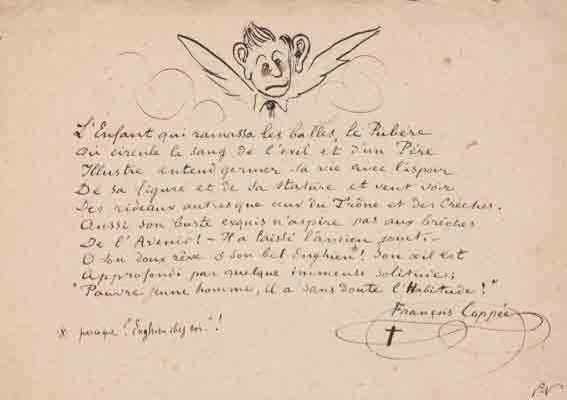 L'Enfant qui ramassa les balles, le Pubère
Où circule le sang de l'exil et d'un Père
Illustre entend germer sa vie avec l'espoir
De sa figure et de sa stature et veut voir
Des rideaux autres que ceux du Trône et des Crèches.
Aussi son buste exquis n'aspire pas aux brèches
De l'Avenir! – Il a laissé l'ancien jouet. –
O son doux rêve ô son bel Enghien*! Son œil est
Approfondi par quelque immense solitude;
"Pauvre jeune homme, il a sans doute l'Habitude!"
François Coppée
* parce que "Enghien chez soi"!
P.V